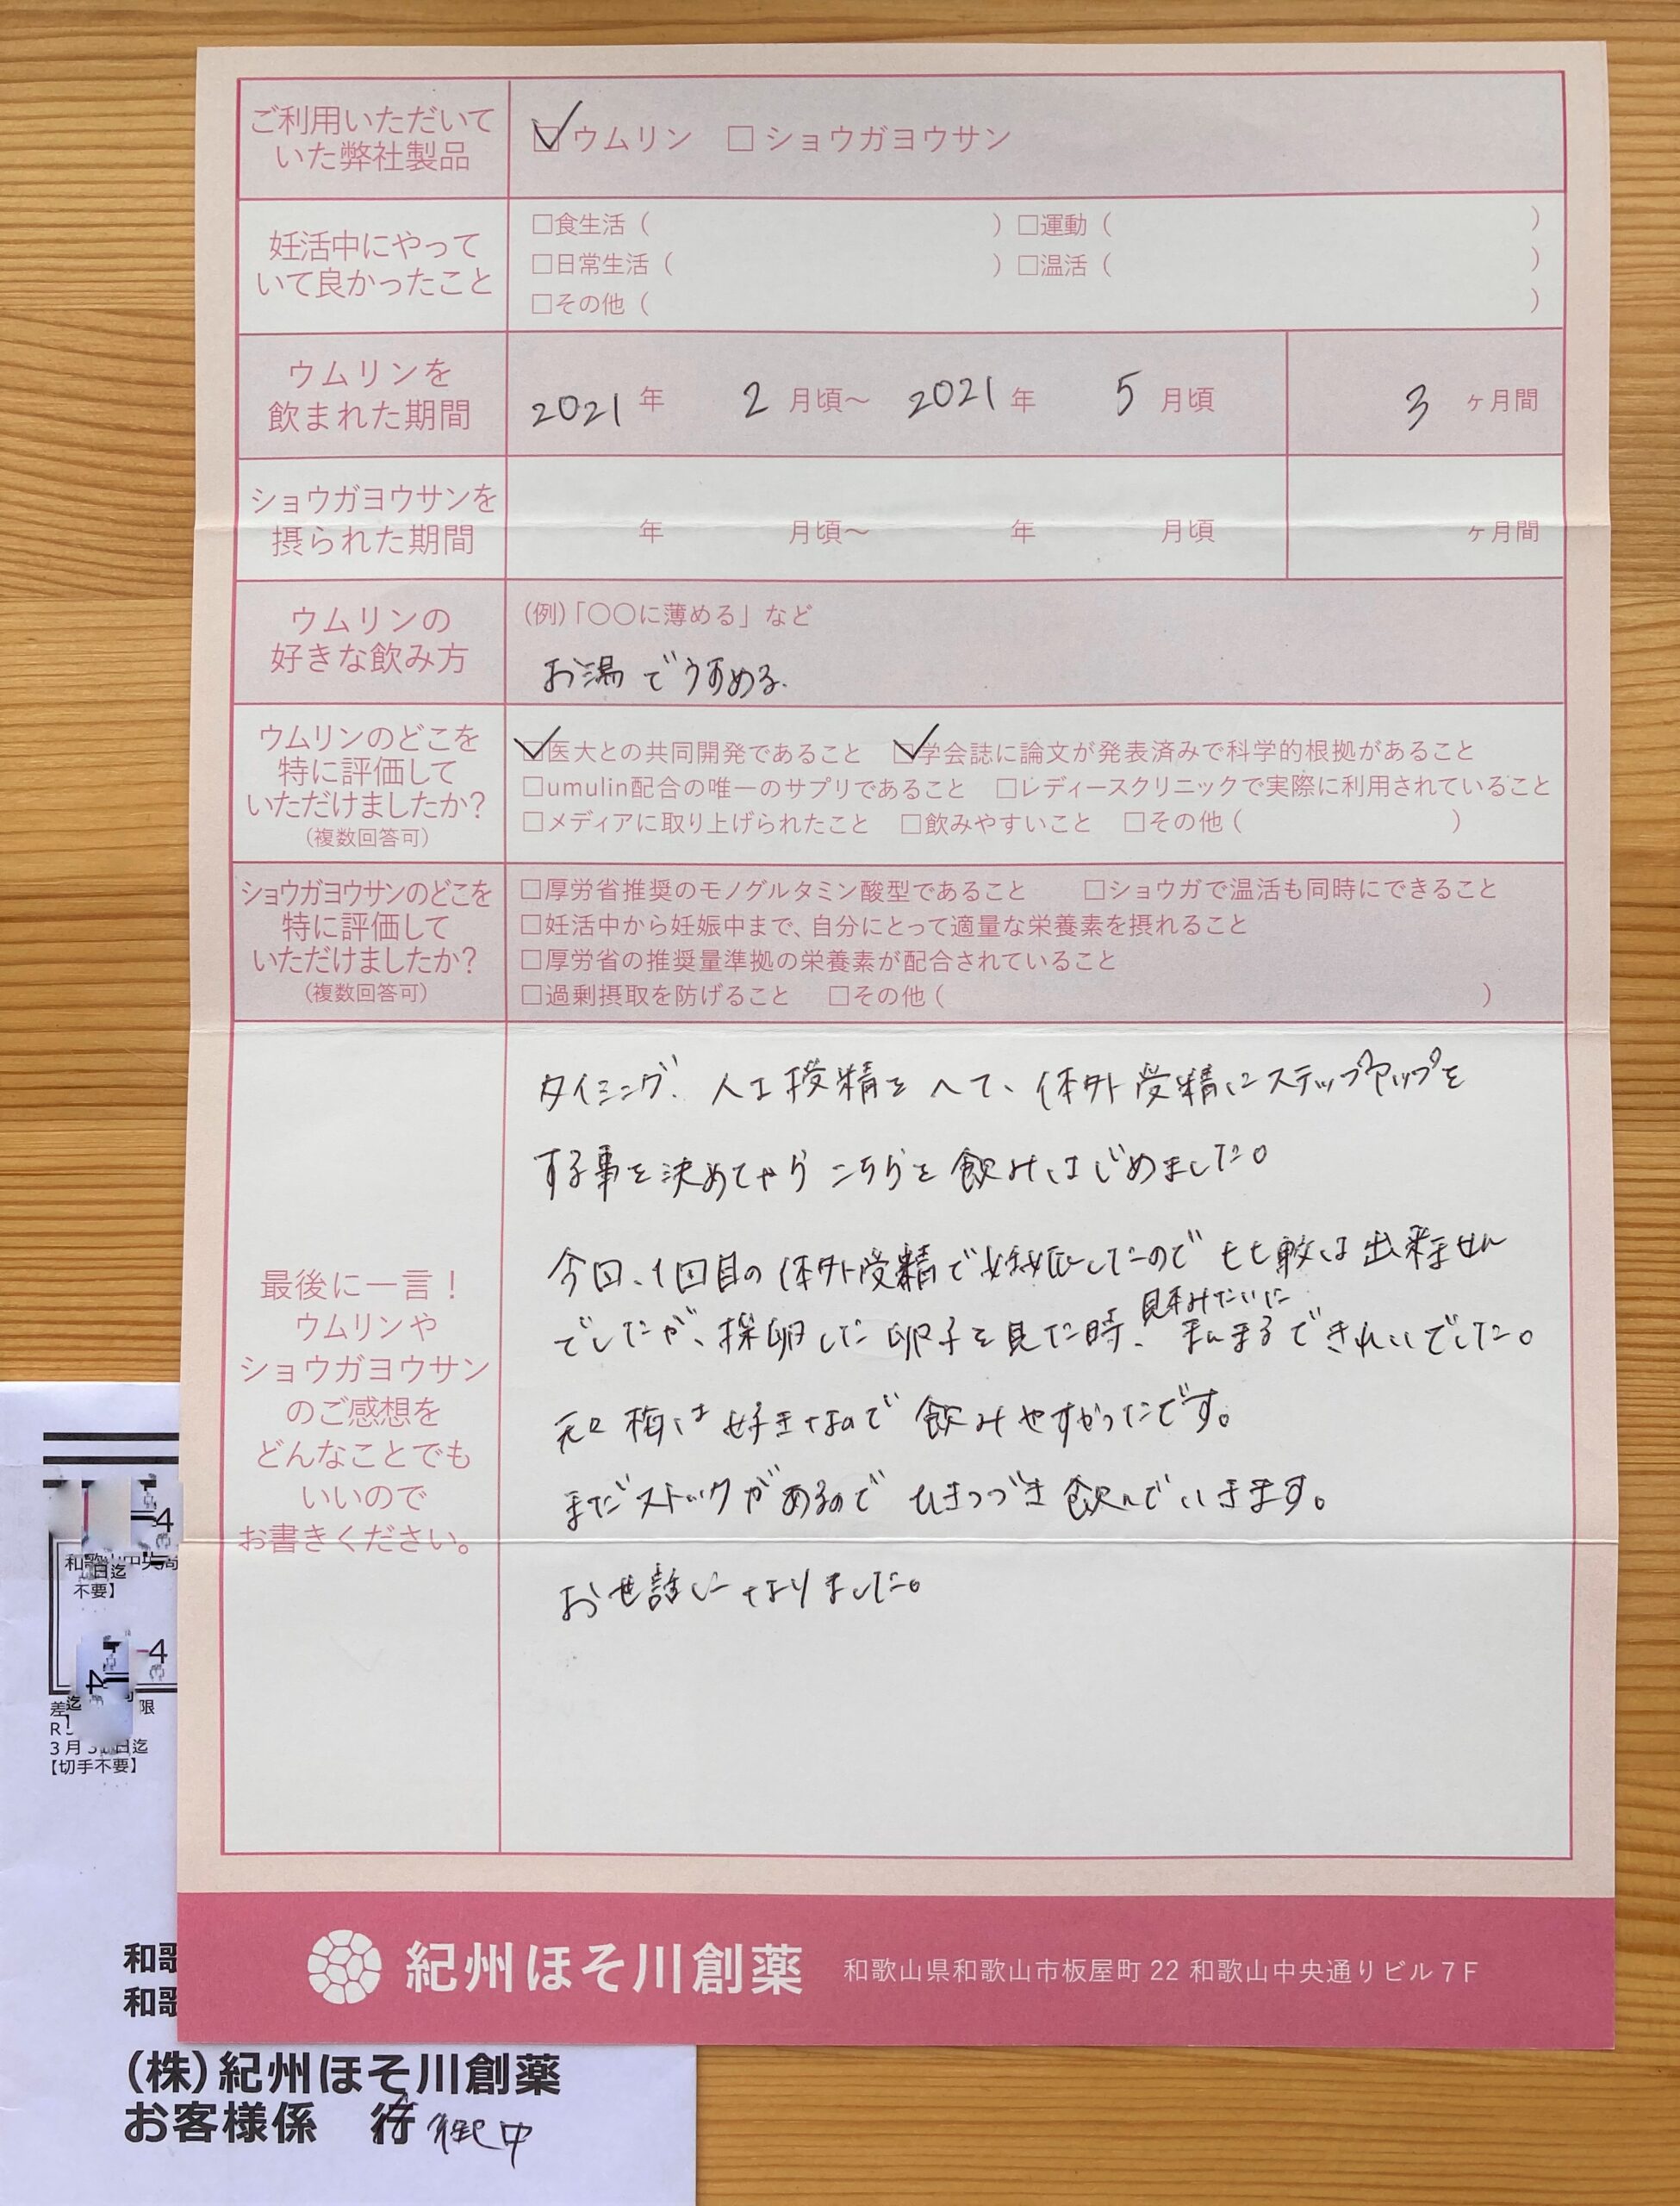 ご利用いただいて
いた弊社製品
☑ウムリン □ショウガヨウサン
妊活中にやって
いて良かったこと
□食生活（ ）□運動（ ）
□日常生活（ ）□温活（ ）
□その他（ ）
ウムリンを
飲まれた期間
2021年 2月頃〜 2021年 5月頃 3ヶ月間
ショウガヨウサンを
摂られた期間
年 月頃〜 年 月頃 ヶ月間
ウムリンの
好きな飲み方
(例)「〇〇に薄める」など
お湯でうすめる.
ウムリンのどこを
特に評価して
いただけましたか?
(複数回答可)
☑医大との共同開発であること ☑学会誌に論文が発表済みで科学的根拠があること
□umulin配合の唯一のサプリであること □レディースクリニックで実際に利用されていること
□メディアに取り上げられたこと □飲みやすいこと □その他（ ）
ショウガヨウサンのどこを
特に評価して
いただけましたか?
(複数回答可)
□厚労省推奨のモノグルタミン酸型であること □ショウガで温活も同時にできること
□妊活中から妊娠中まで、自分にとって適量な栄養素を摂れること
□厚労省の推奨量準拠の栄養素が配合されていること
□過剰摂取を防げること □その他（ ）
最後に一言！
ウムリンや
ショウガヨウサン
のご感想を
どんなことでも
いいので
お書きください。
タイミング、人工授精をへて、体外受精にステップアップを
する事を決めてからこちらを飲みはじめました。
今回、1回目の体外受精で妊娠したので比較は出来ません
でしたが、採卵した卵子を見た時、見本みたいにまんまるできれいでした。
元々梅は好きなので飲みやすかったです。
まだストックがあるのでひきつづき飲んでいきます。
お世話になりました。
紀州ほそ川創薬 和歌山県和歌山市板屋町 22 和歌山中央通りビル 7 F
不要】
3月
日迄
【切手不要】
和歌
和歌
(株)紀州ほそ川創薬
お客様係 行 御中